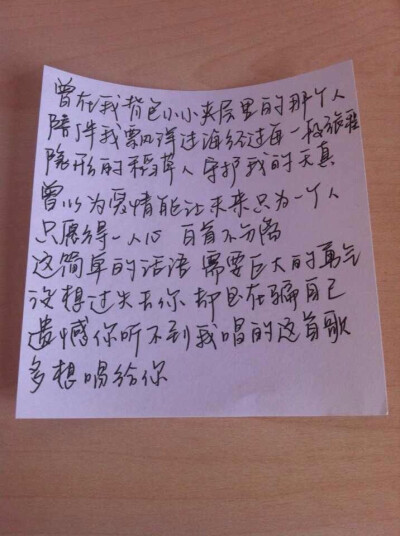 曾在我背包小小夹层里的那个人
陪伴我飘洋过海经过每一段旅程
隐形的稻草人 守护我的天真
曾以为爱情能让未来只为一个人
只愿得一人心 白首不分离
这简单的话语 需要巨大的勇气
没想过失去你 却是在骗自己
遗憾你听不到我唱的这首歌
多想唱给你